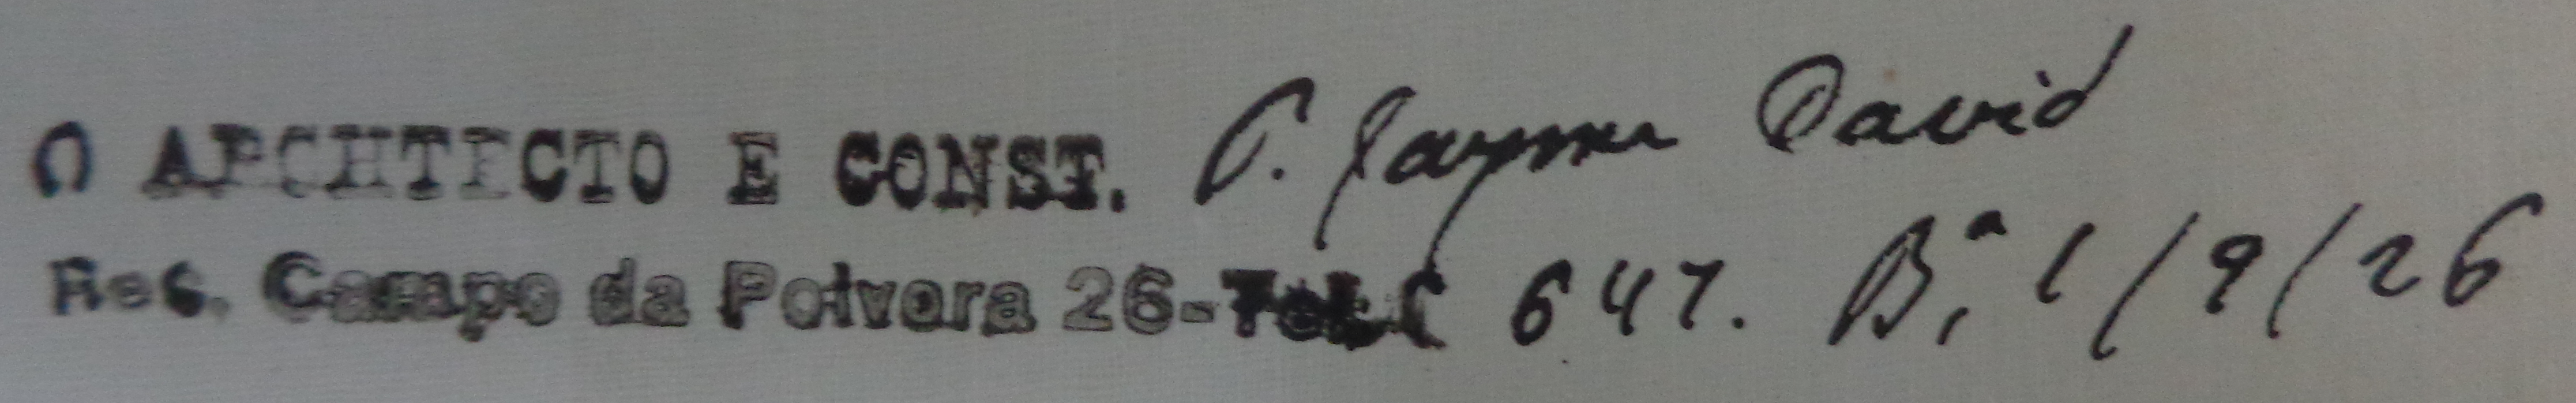 O ARCHTECTO E CONST. P. Jayme David
Res. Campo da Polvora 26-Tel. 647. B.ª 1/9/26